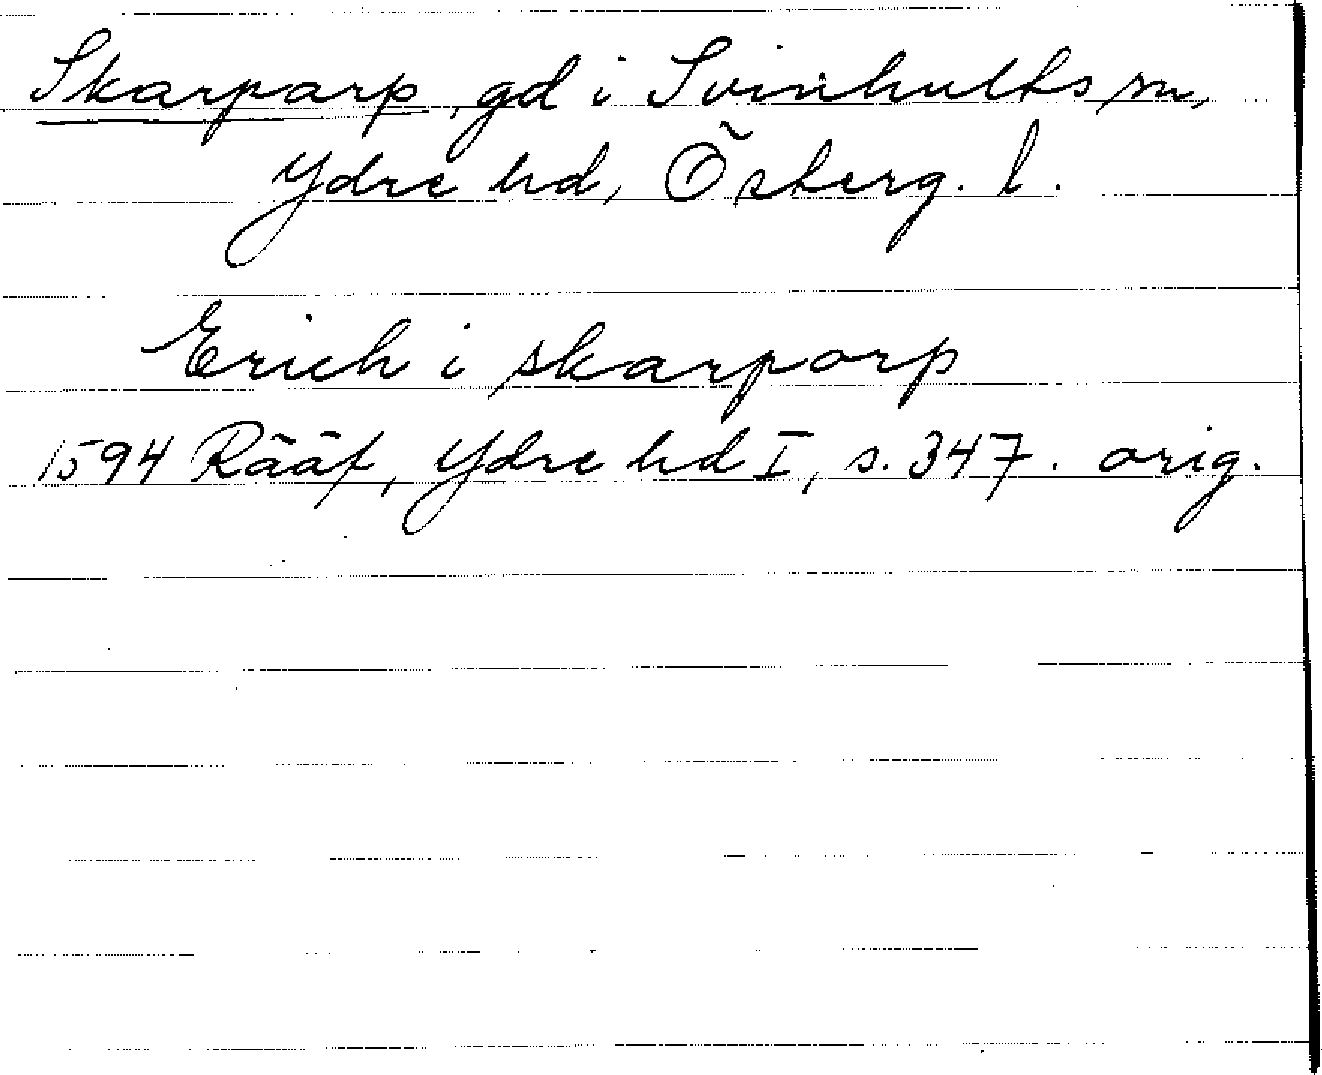 Skarparp, gd i Svinhults sn,
Ydre hd, Österg. l.
Erich i skarporp
1594 Rääf, Ydre hd I, s. 347. orig.